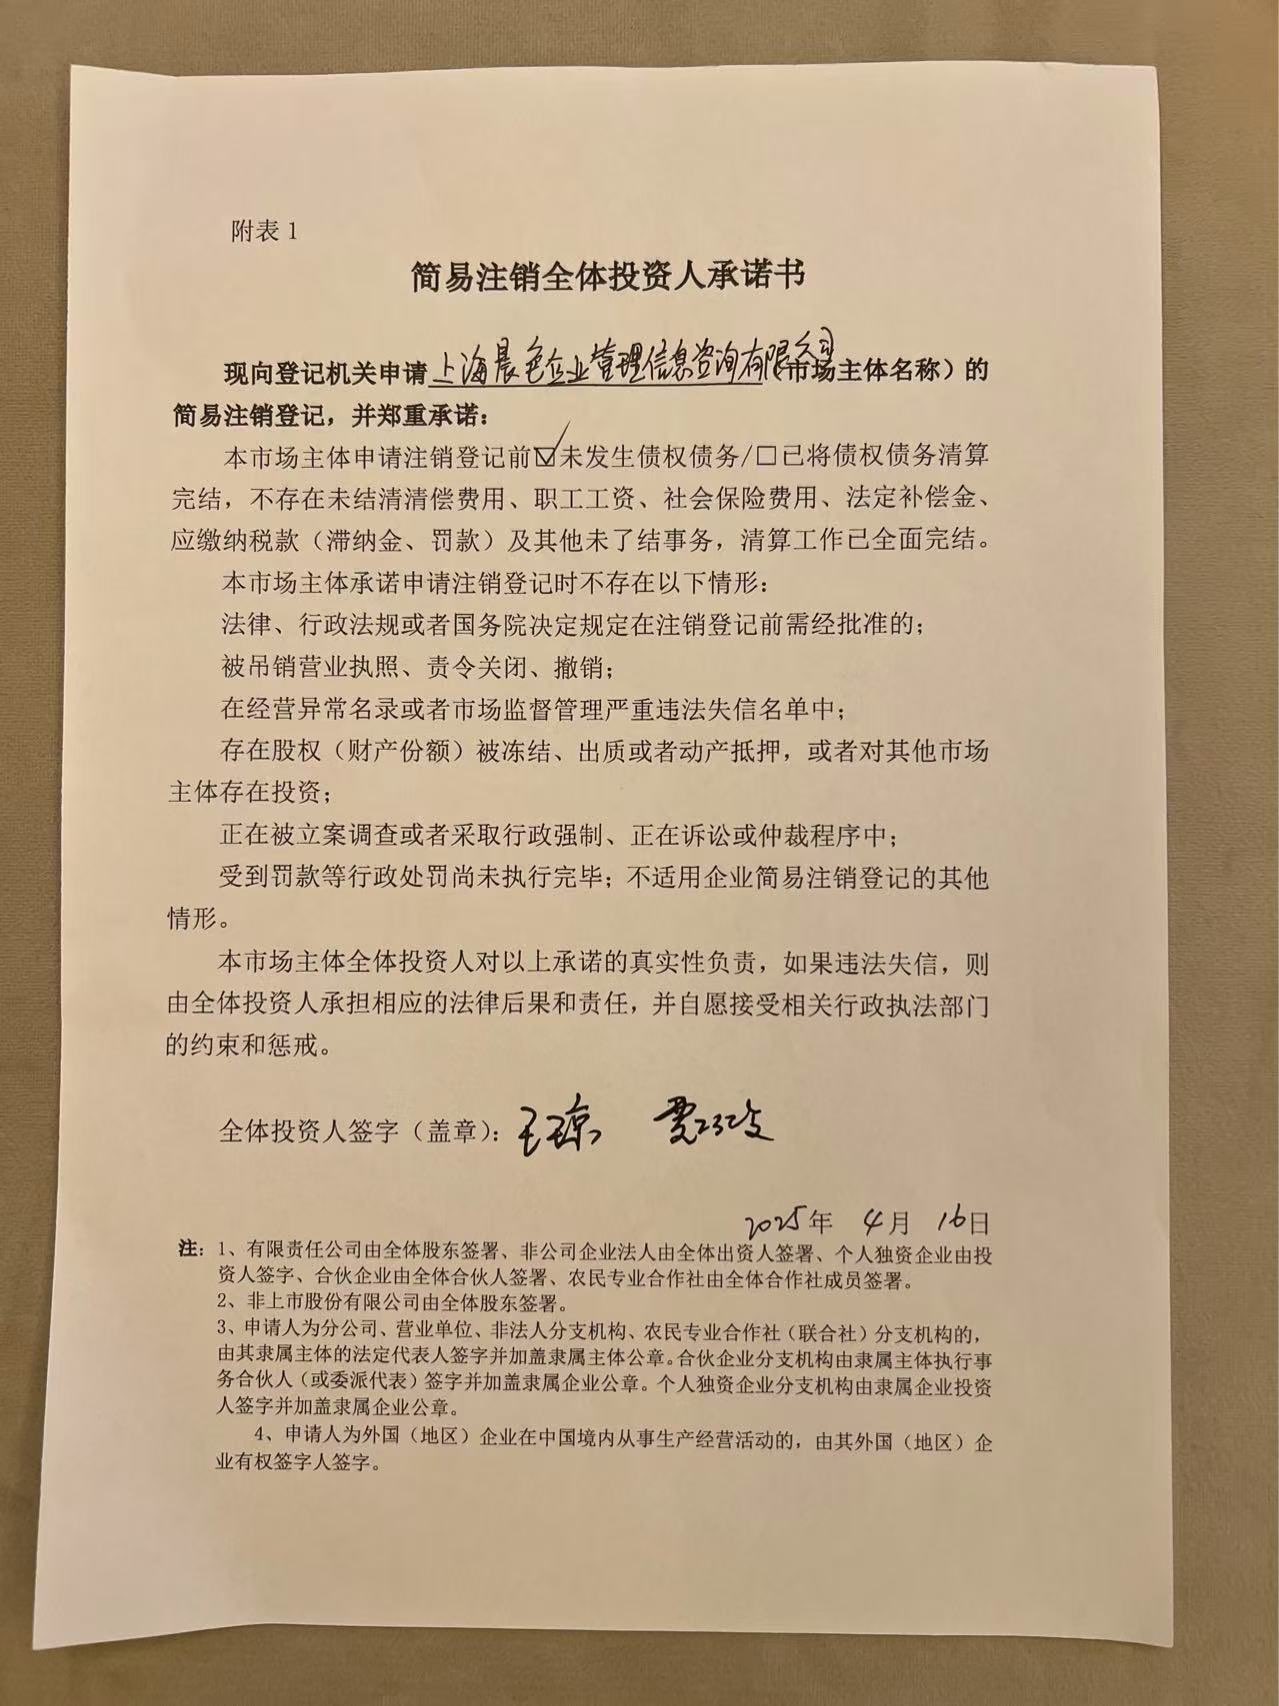 附表 1
简易注销全体投资人承诺书
现向登记机关申请上海晨色企业管理信息咨询有限公司（市场主体名称）的
简易注销登记，并郑重承诺：
本市场主体申请注销登记前☑未发生债权债务/□已将债权债务清算
完结，不存在未结清清偿费用、职工工资、社会保险费用、法定补偿金、
应缴纳税款（滞纳金、罚款）及其他未了结事务，清算工作已全面完结。
本市场主体承诺申请注销登记时不存在以下情形：
法律、行政法规或者国务院决定规定在注销登记前需经批准的；
被吊销营业执照、责令关闭、撤销；
在经营异常名录或者市场监督管理严重违法失信名单中；
存在股权（财产份额）被冻结、出质或者动产抵押，或者对其他市场
主体存在投资；
正在被立案调查或者采取行政强制、正在诉讼或仲裁程序中；
受到罚款等行政处罚尚未执行完毕；不适用企业简易注销登记的其他
情形。
本市场主体全体投资人对以上承诺的真实性负责，如果违法失信，则
由全体投资人承担相应的法律后果和责任，并自愿接受相关行政执法部门
的约束和惩戒。
全体投资人签字（盖章）：王琼
2025年 4月 16日
注：1、有限责任公司由全体股东签署、非公司企业法人由全体出资人签署、个人独资企业由投
资人签字、合伙企业由全体合伙人签署、农民专业合作社由全体合作社成员签署。
2、非上市股份有限公司由全体股东签署。
3、申请人为分公司、营业单位、非法人分支机构、农民专业合作社（联合社）分支机构的，
由其隶属主体的法定代表人签字并加盖隶属主体公章。合伙企业分支机构由隶属主体执行事
务合伙人（或委派代表）签字并加盖隶属企业公章。个人独资企业分支机构由隶属企业投资
人签字并加盖隶属企业公章。
4、申请人为外国（地区）企业在中国境内从事生产经营活动的，由其外国（地区）企
业有权签字人签字。